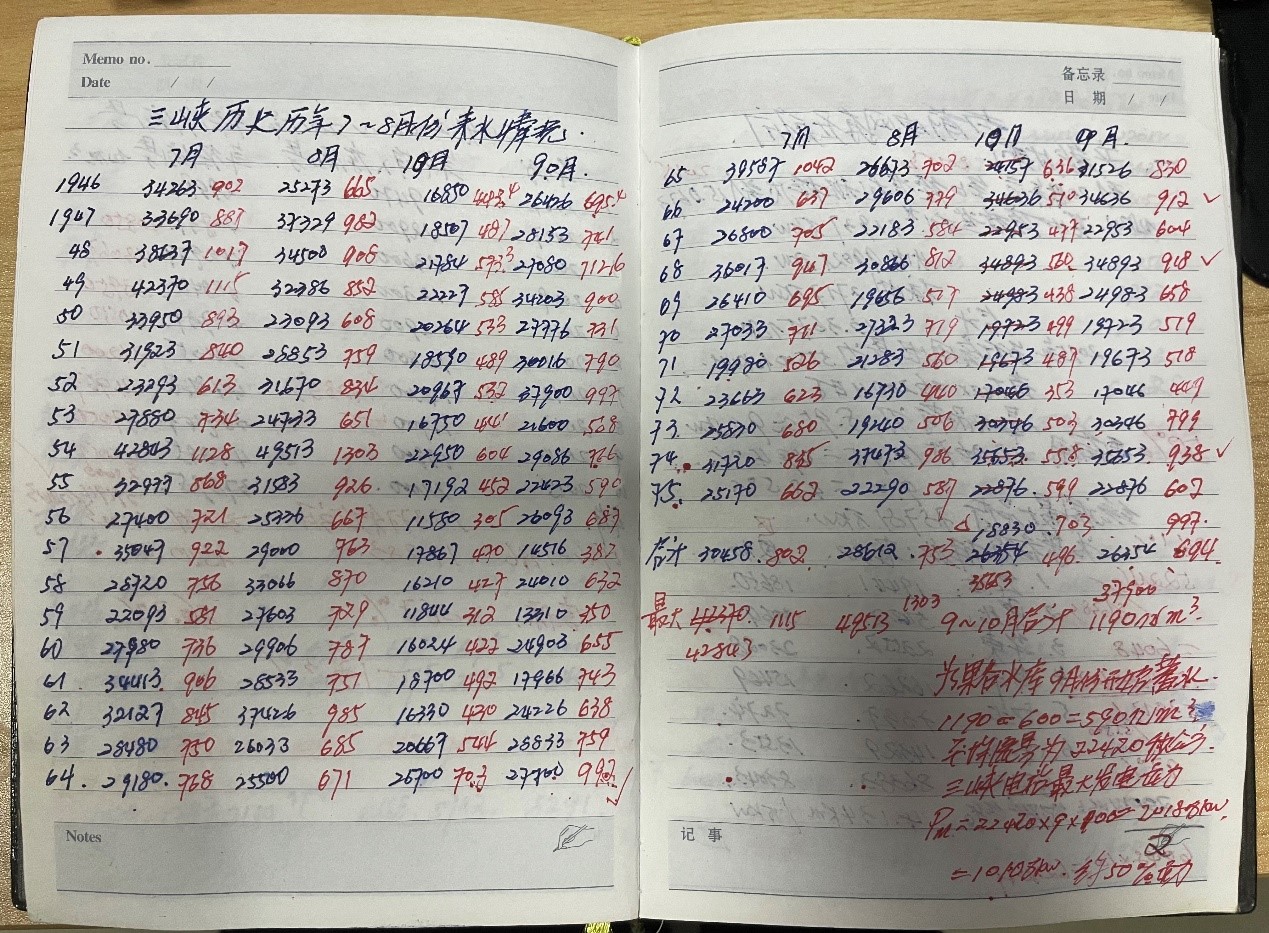 Memo no.
Date / /
三峡历史历年7~8月份来水情况
7月 8月 10月 9月
1946 34263 902 25273 665 16850 26426 695.4
1947 33690 887 37329 982 18507 487 28153 741
48 38637 1017 34500 908 21784 573.3 27080 712.6
49 42370 1115 32386 852 22227 585 34203 900
50 33950 893 23093 608 20264 533 27776 731
51 31923 840 28853 759 18590 489 30016 790
52 23293 613 31670 834 20967 532 37900 997
53 27880 734 24733 651 16750 441 21600 568
54 42843 1128 49513 1303 22950 604 29086 766
55 32977 868 31583 926 17192 452 22423 590
56 27400 721 25336 667 11580 305 26093 687
57 35047 922 29000 763 17867 470 14516 382
58 28720 756 33066 870 16210 427 24010 632
59 22093 581 27603 729 11844 312 13310 350
60 27980 736 29906 787 16024 422 24903 655
61 34413 906 28533 751 18700 492 17966 743
62 32127 845 37426 985 16330 430 24226 638
63 28480 750 26033 685 20667 544 28833 759
64 29180 768 25500 671 26700 703 27700 993
Notes
备忘录
日 期 / /
7月 8月 10月 9月
65 39587 1042 26673 702 24157 636 31526 830
66 24200 637 29606 779 34636 570 34636 912 ✓
67 26800 705 22183 584 22953 477 22953 604
68 36017 947 30866 812 34893 34893 918 ✓
69 26410 695 19656 517 24983 438 24983 658
70 27033 711 27323 719 19723 499 19723 519
71 19980 526 21283 560 19673 487 19673 518
72 23663 623 16730 440 17046 353 17046 449
73 25830 680 19240 506 30346 503 30346 799
74 31720 835 37473 986 35653 558 35653 938 ✓
75 25170 662 22290 587 22876 599 22876 602
18830 703 997
合计 30458 802 28612 753 26354 496 26354 694
35653 37900
最大 42370 1115 49513 1303 9~10月合计 1190亿m³
42843
为果台水库9月份开始蓄水
1190-600=590亿m³
平均流量为22420
三峡电站最大发电出力
Pm=22420×9×900=2018万kw
2
=1010万kw 约50%出力
记 事